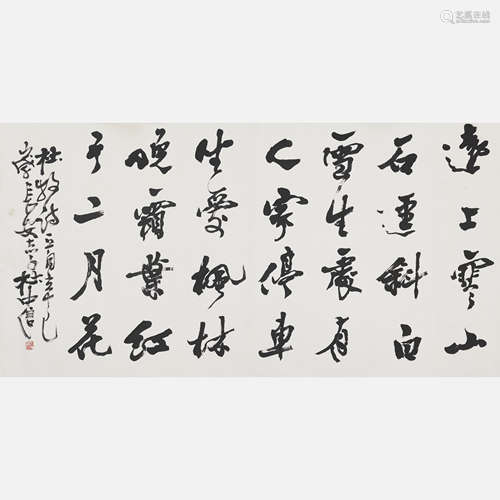 遠上寒山
石逕斜白
雲生處有
人家停車
坐愛楓林
晚霜葉紅
于二月花
杜牧詩
杜中信